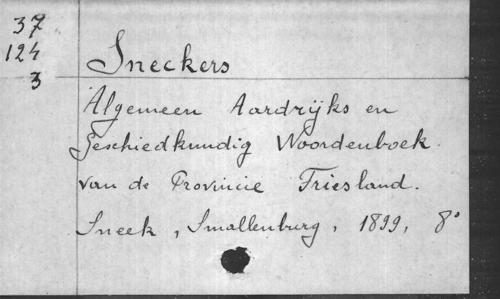 37
124
3
Sneckers
Algemeen Aardrijks en
Geschiedkundig Woordenboek
van de Provincie Friesland.
Sneek, Smallenburg, 1899, 8°